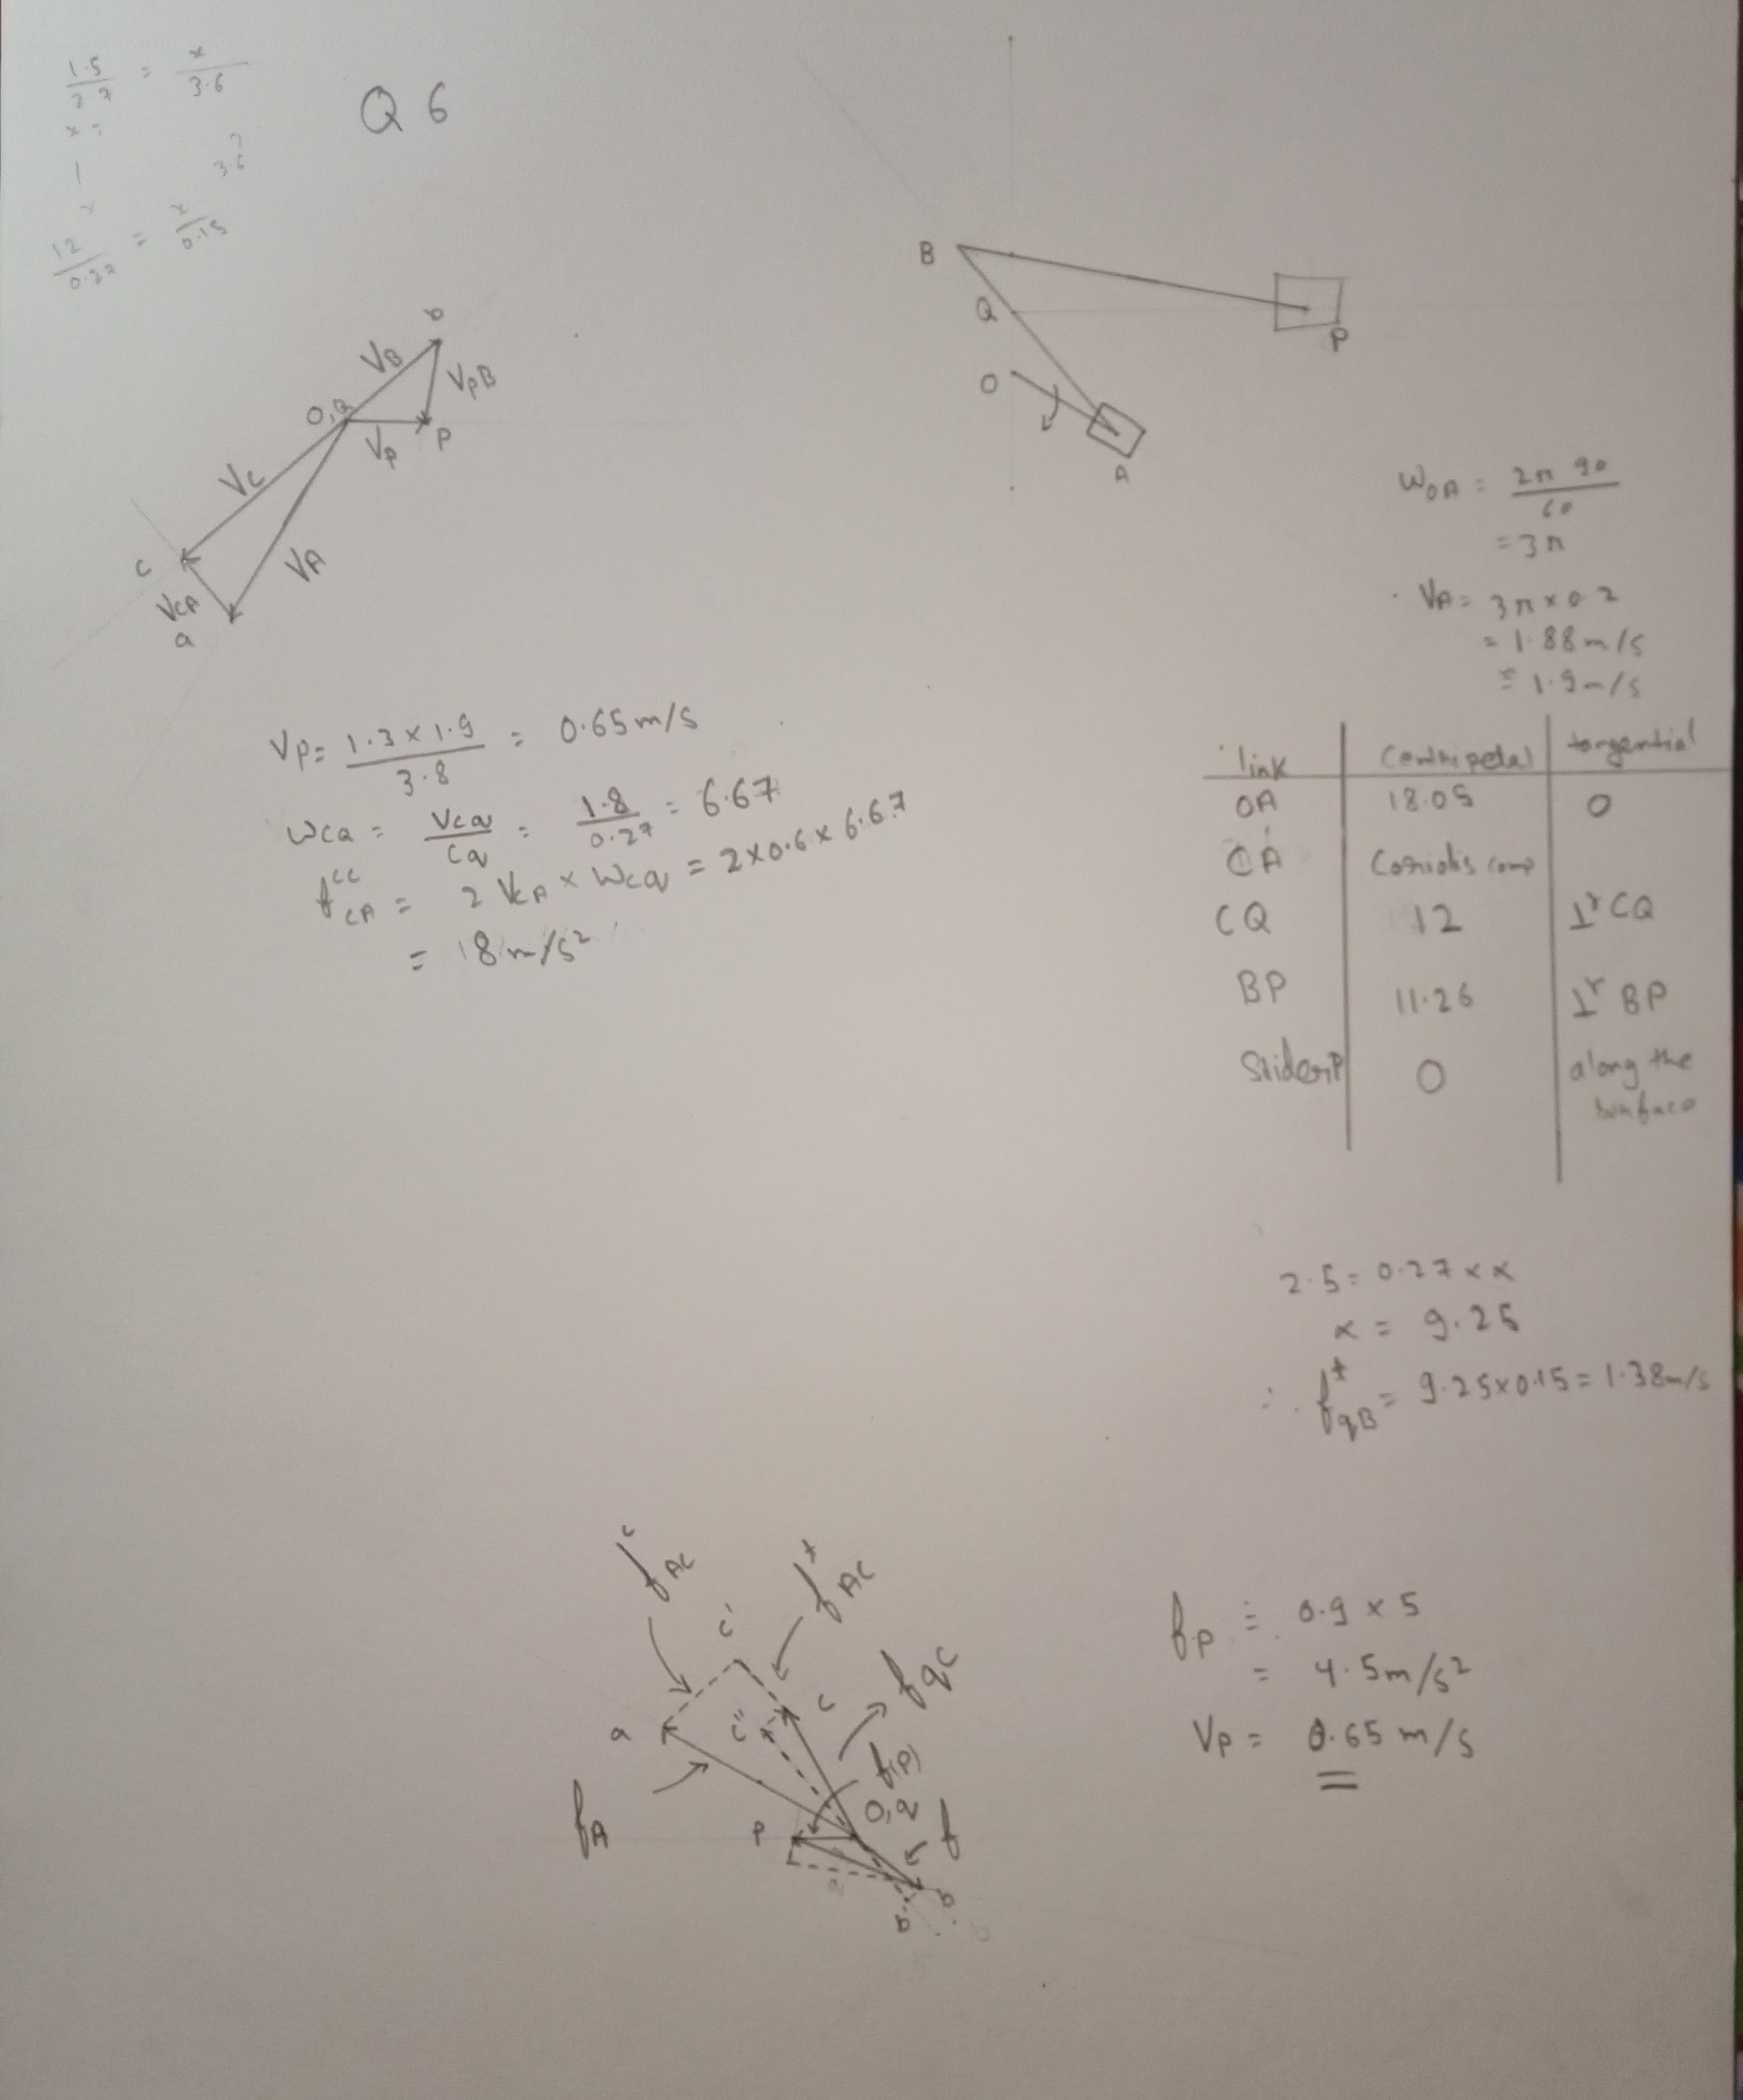 1.5 / 2.7 = x / 3.6
x =
1 3.6
x
12 / 0.27 = x / 0.15
Q 6
B
Q
O
P
A
b
VB
VPB
O,Q
VP
P
VC
VA
C
VCA
a
WOA = 2π 90 / 60
= 3π
VA = 3π × 0.2
= 1.88 m/s
= 1.9 m/s
VP = 1.3 × 1.9 / 3.8 = 0.65 m/s
WCQ = VCQ / CQ = 1.8 / 0.27 = 6.67
f^cc CA = 2 VCA × WCQ = 2 × 0.6 × 6.67
= 18 m/s²
link | Centripetal | tangential
OA | 18.05 | 0
CA | Coriolis comp
CQ | 12 | ⊥r CQ
BP | 11.26 | ⊥r BP
Slider P | 0 | along the surface
2.5 = 0.27 × x
x = 9.25
∴ f^t qB = 9.25 × 0.15 = 1.38 m/s
f^c AC
f^t AC
c'
c
fqc
a
c''
f(P)
O,q
fA
P
f
b
b'
fP = 0.9 × 5
= 4.5 m/s²
VP = 0.65 m/s